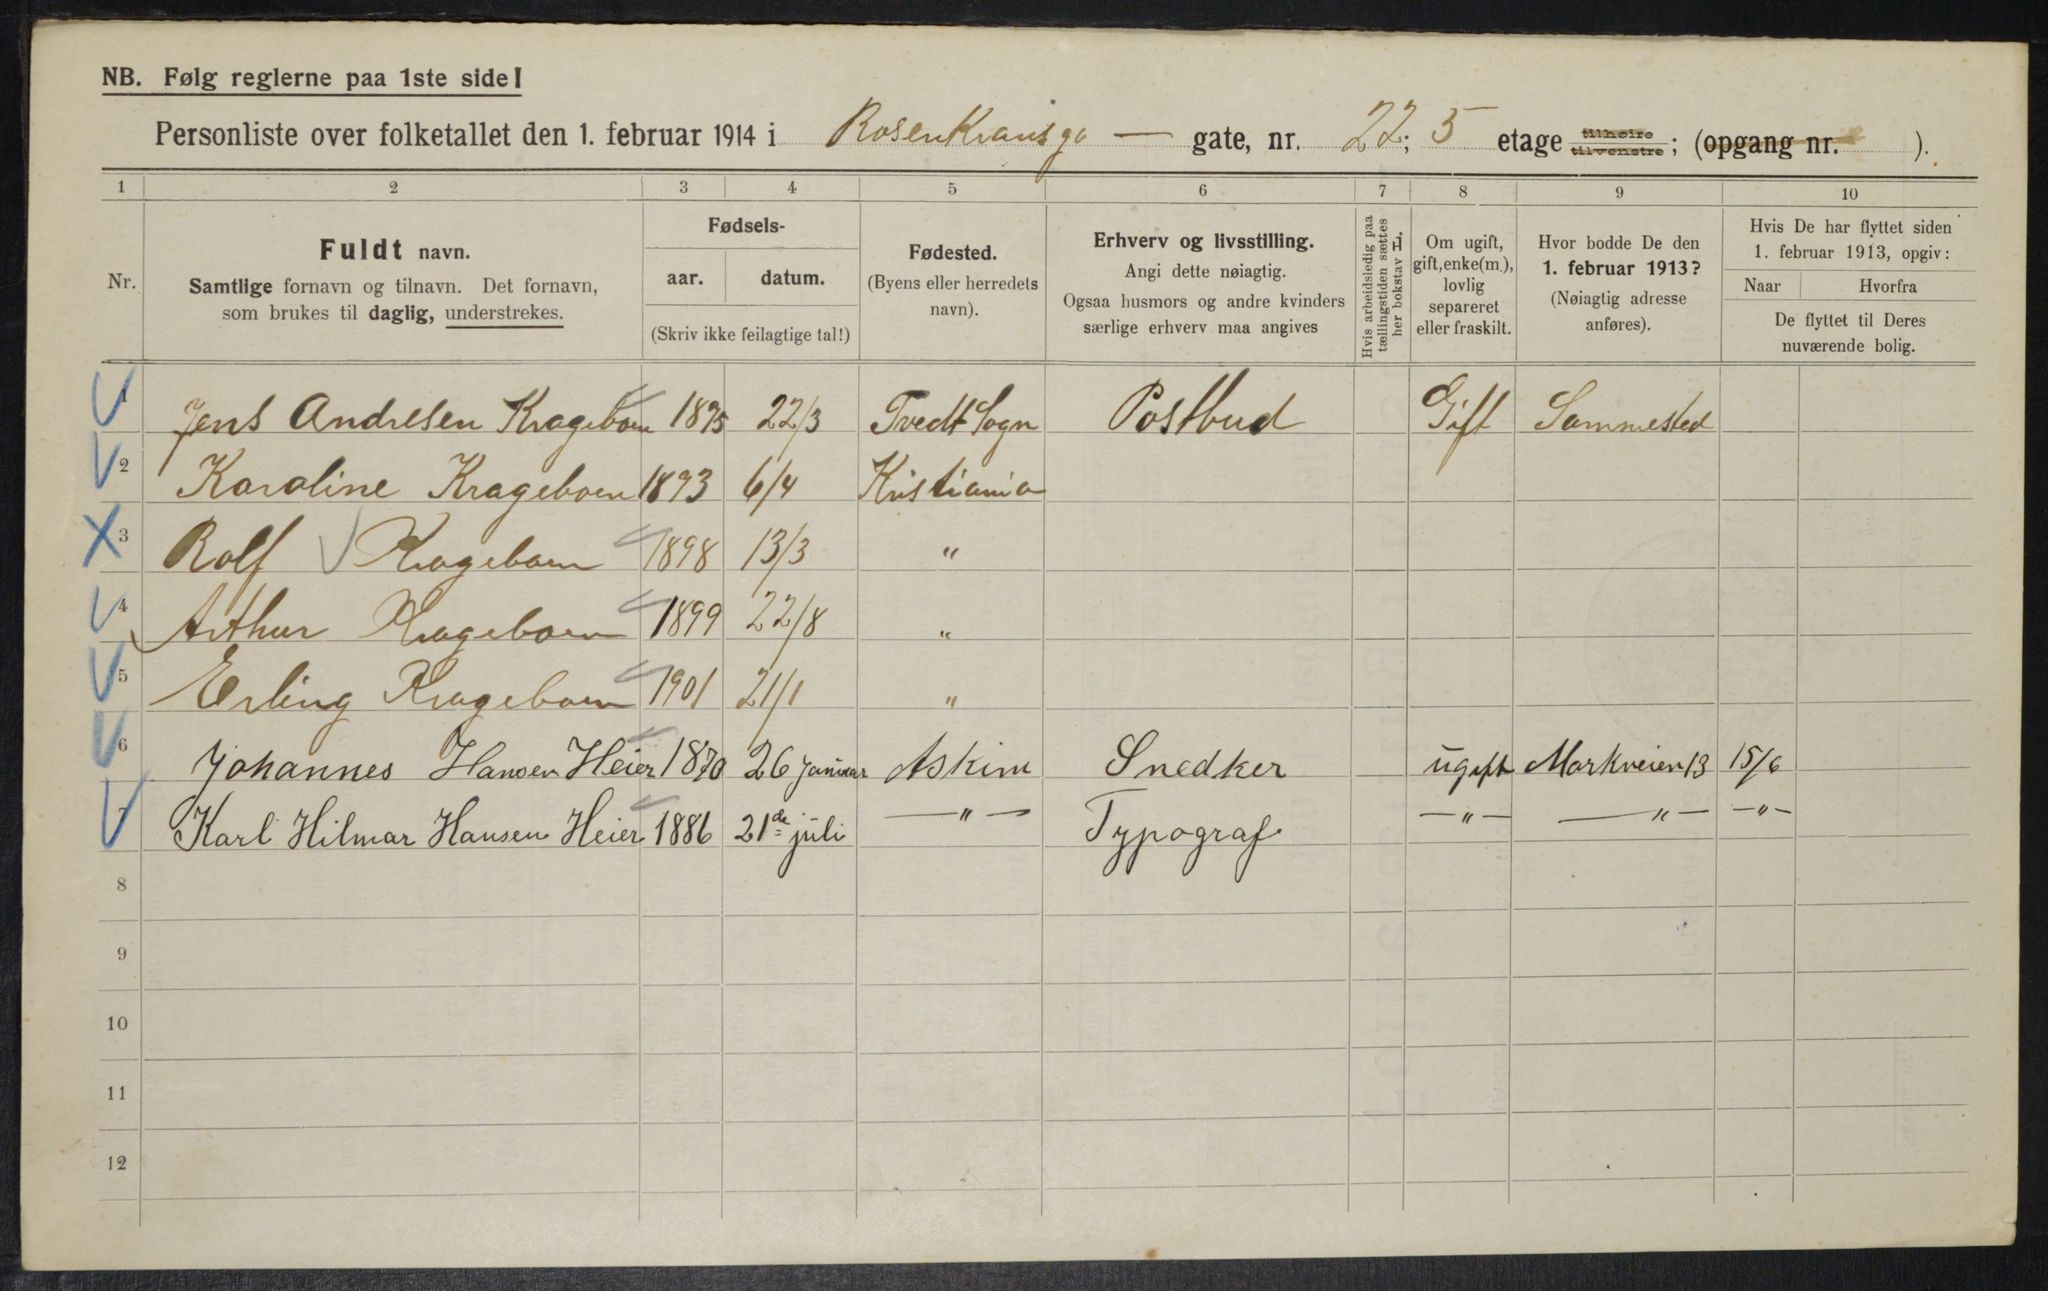 NB. Følg reglerne paa 1ste side!
Personliste over folketallet den 1. februar 1914 i Rosenkransga — gate, nr. 22; 5 etage tilhøire tilvenstre; (opgang nr. ).
1 2 3 4 5 6 7 8 9 10
Nr.
Fuldt navn.
Samtlige fornavn og tilnavn. Det fornavn,
som brukes til daglig, understrekes.
Fødsels-
aar. datum.
(Skriv ikke feilagtige tal!)
Fødested.
(Byens eller herredets
navn).
Erhverv og livsstilling.
Angi dette nøiagtig.
Ogsaa husmors og andre kvinders
særlige erhverv maa angives
Hvis arbeidsledig paa
tællingstiden sættes
her bokstav L.
Om ugift,
gift, enke(m.),
lovlig
separeret
eller fraskilt.
Hvor bodde De den
1. februar 1913?
(Nøiagtig adresse
anføres).
Hvis De har flyttet siden
1. februar 1913, opgiv:
Naar Hvorfra
De flyttet til Deres
nuværende bolig.
1 Jens Andresen Krageboen 1875 22/3 Tvedt Sogn Postbud Gift Sammested
2 Karoline Krageboen 1893 6/4 Kristiania
3 Rolf Krageboen 1898 13/3 "
4 Arthur Krageboen 1899 22/8 "
5 Erling Krageboen 1901 21/1 "
6 Johannes Hansen Heier 1870 26 januar Askim Snedker ugift Markveien 13 15/6
7 Karl Hilmar Hansen Heier 1886 21de juli — " — Typograf — " — — " — — " —
8
9
10
11
12